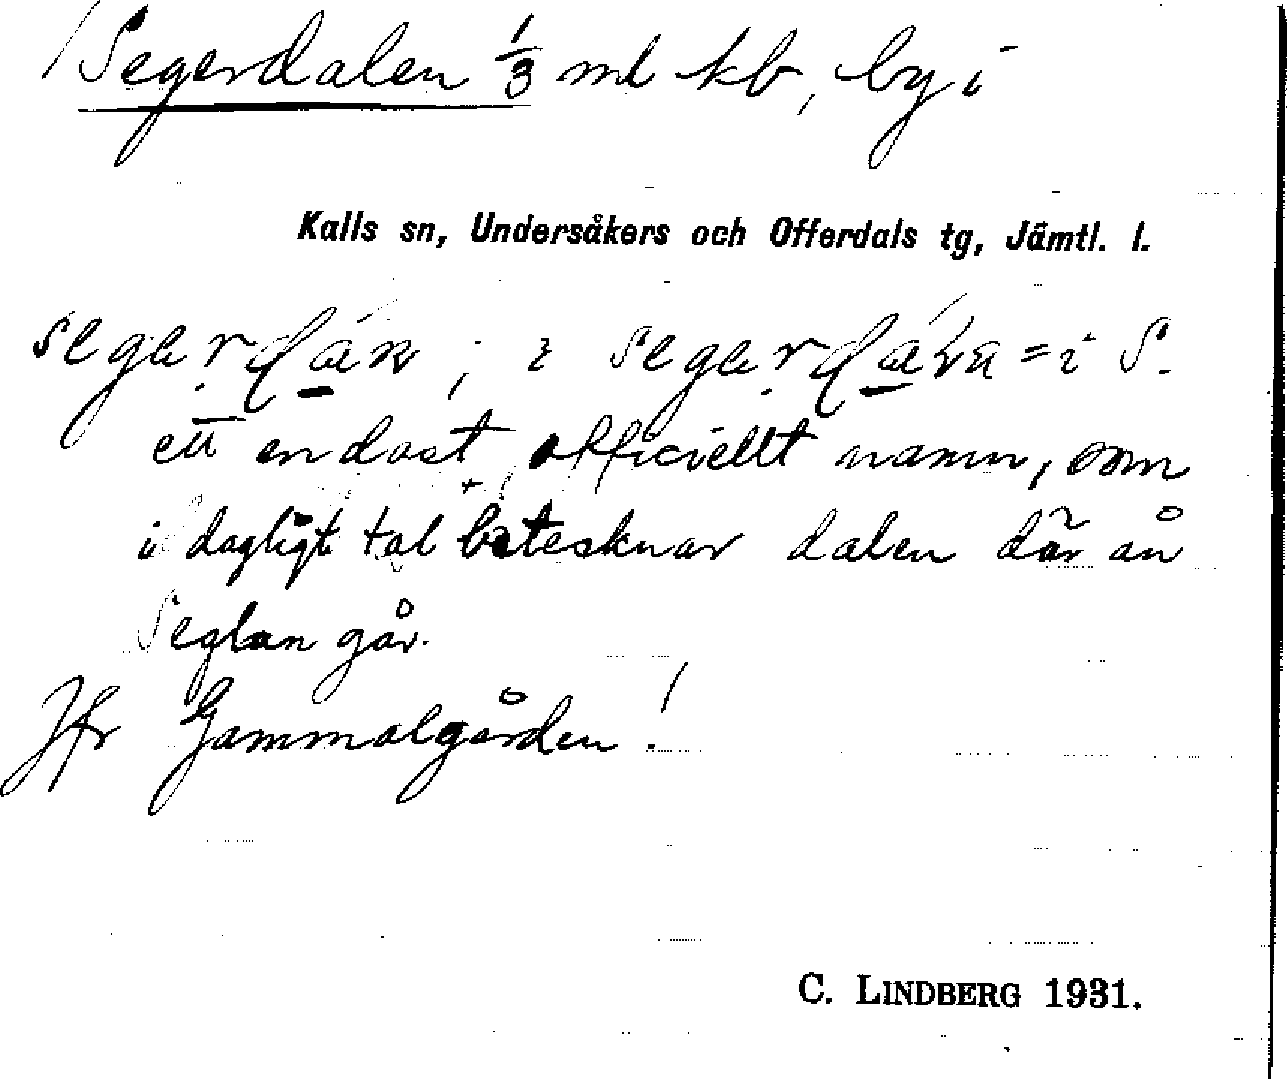 Segerdalen 1/3 ml kb, by i
Kalls sn, Undersåkers och Offerdals tg, Jämtl. l.
i = i S.
ett endast officiellt namn, som
i dagligt tal betecknar dalen där ån
Seglan går.
Jfr Gammalgården!
C. LINDBERG 1931.